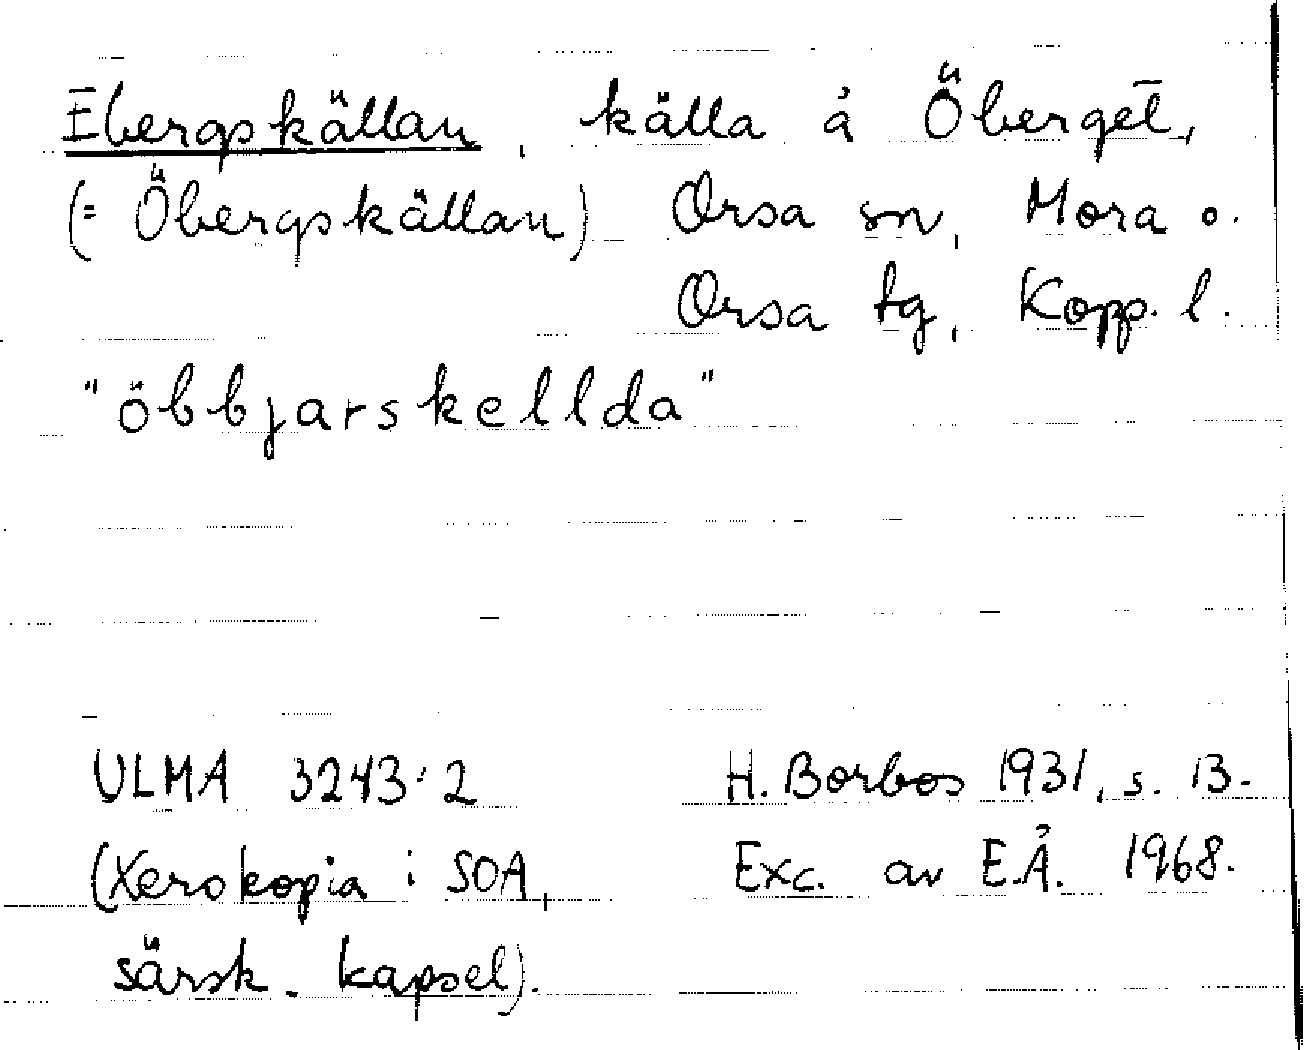 Ebergskällan, källa å Öberget,
(= Öbergskällan) Orsa sn, Mora o.
Orsa tg, Kopp. l.
"öbbjarskellda"
ULMA 3243:2 H. Borbos 1931, s. 13.
(Xerokopia i SOA, Exc. av E.Å. 1968.
särsk. kapsel).